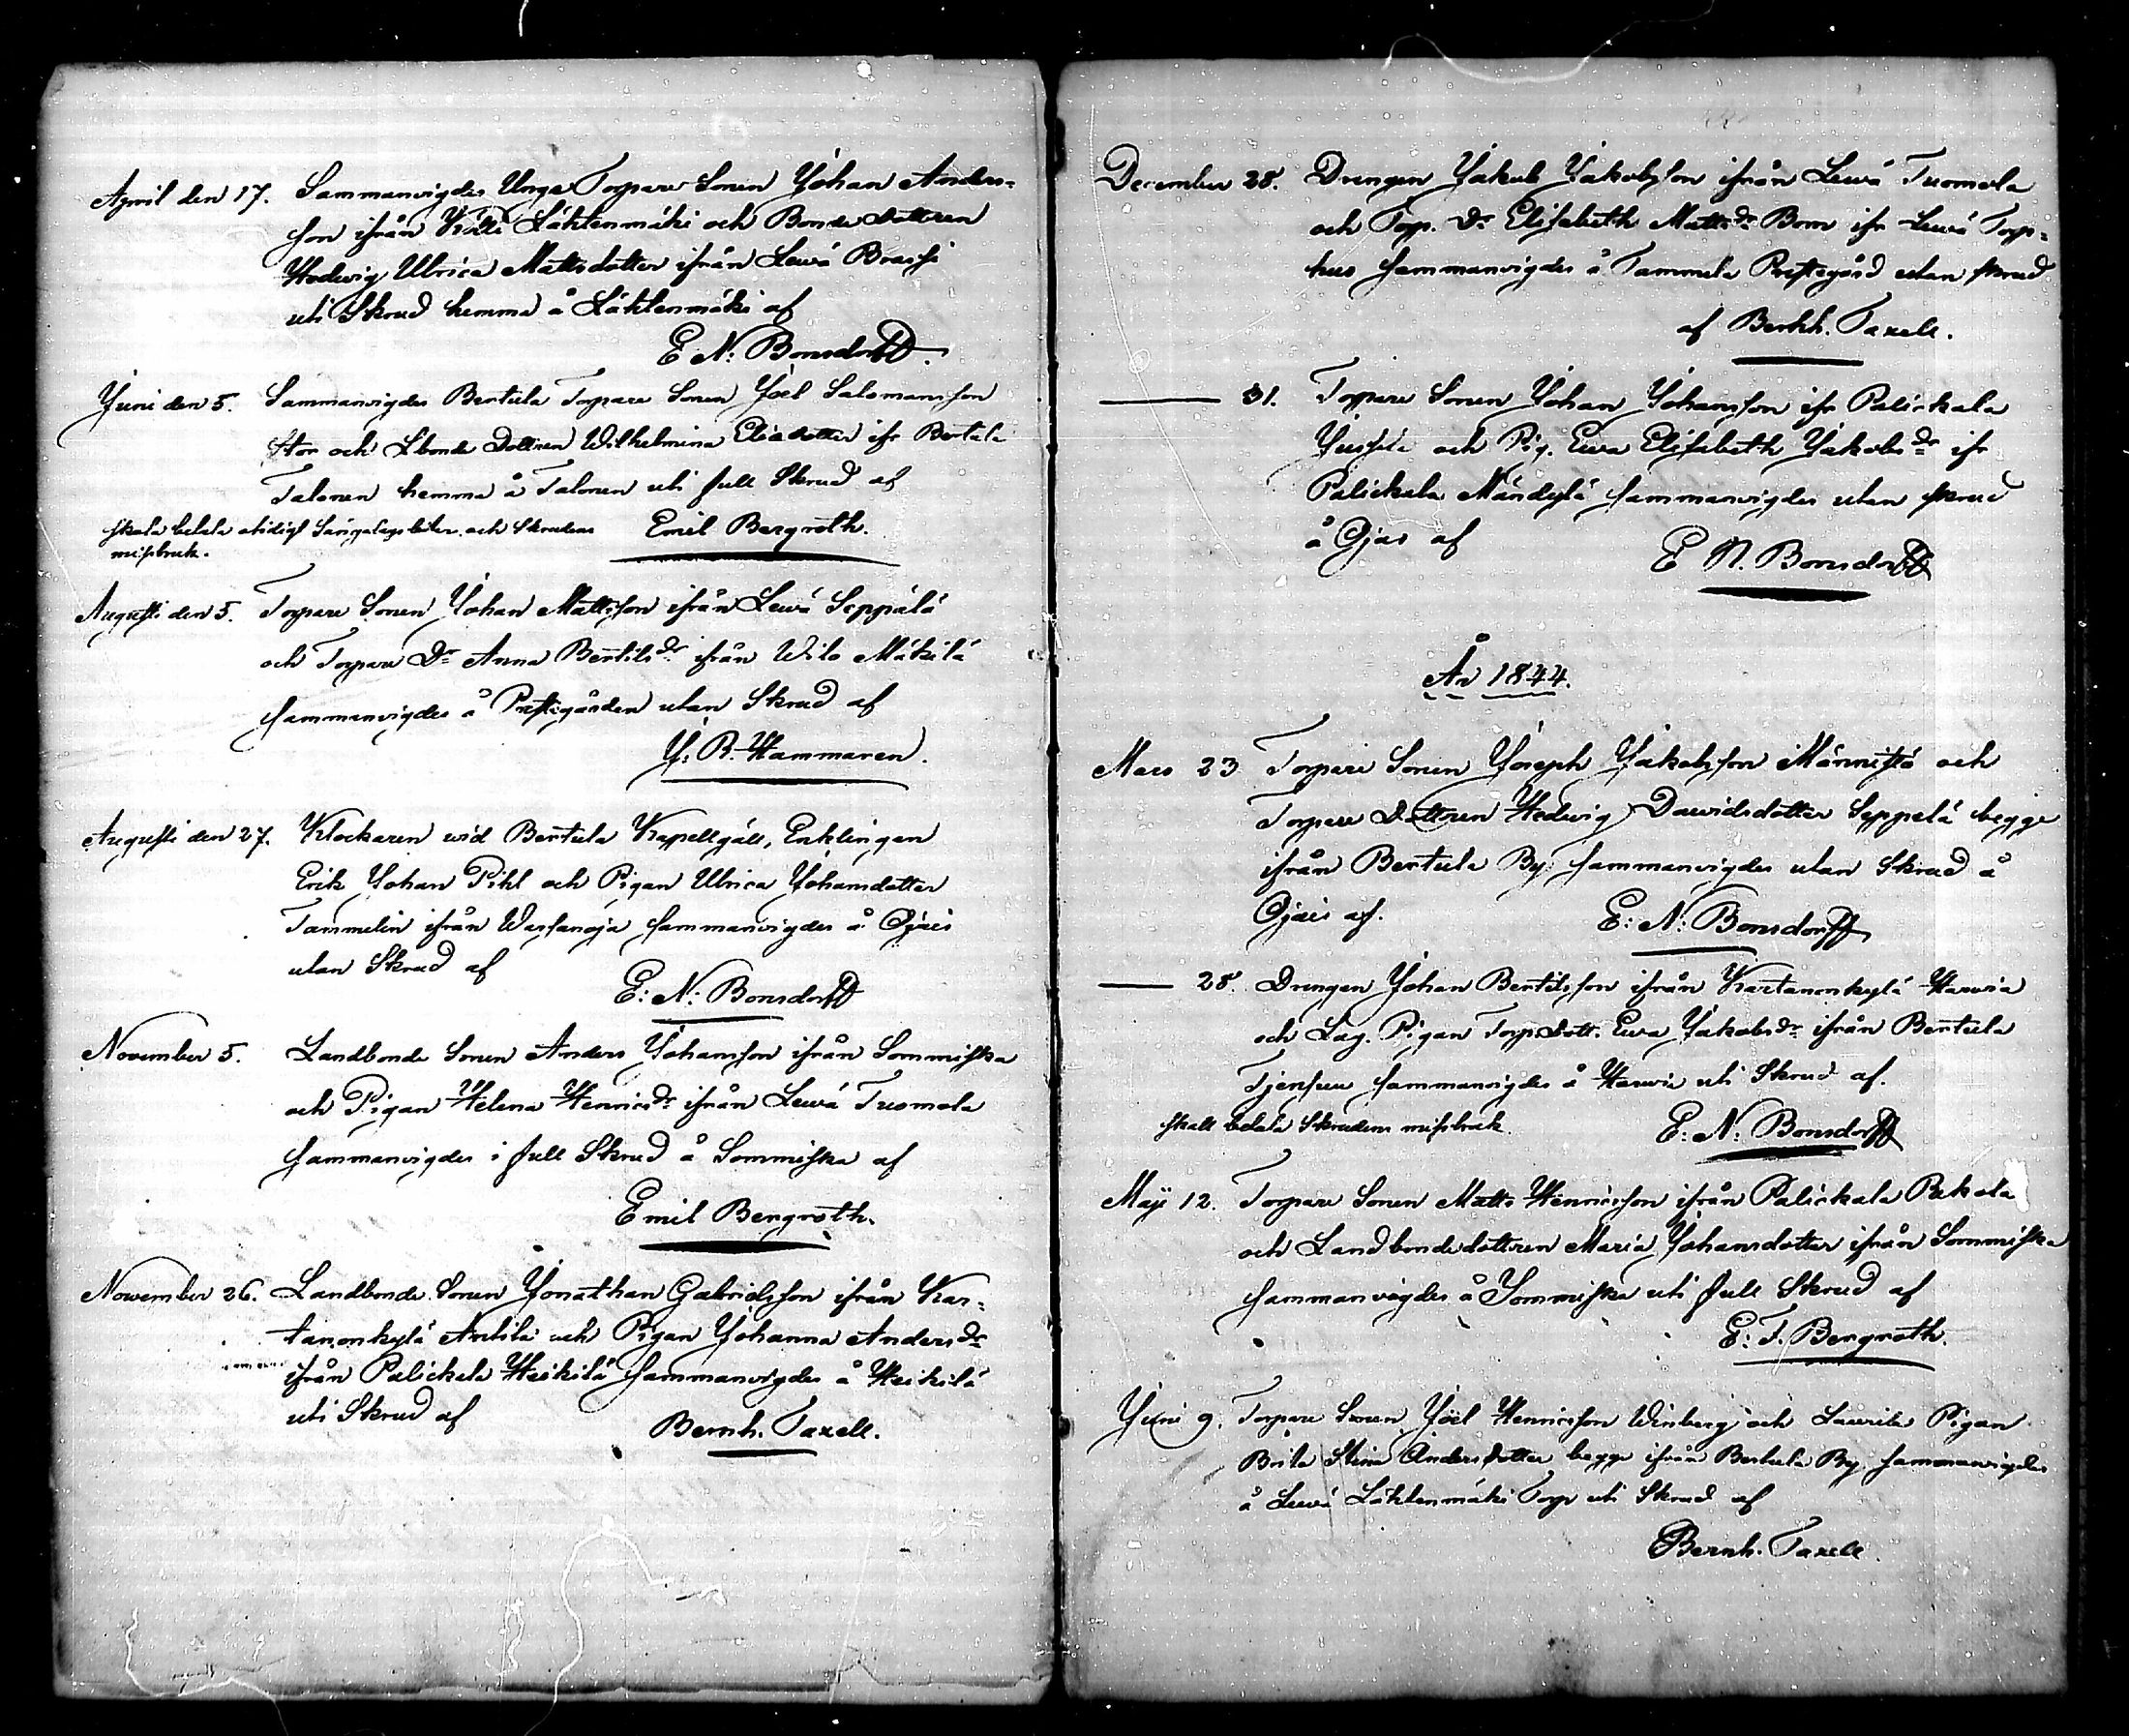 April den 17. Sammanvigdes Unge Torpare Sonen Johan Anders-
son ifrån Källi Lähtenmäki och Bonde Dottren
Hedwig Ulrica Mattsdotter ifrån Lewä
uti Skrud hemma å Lähtenmäki af
E. N: Bonsdorff.
Juni den 5. Sammanvigdes Bertula Torpare Sonen Joel Salomonsson
Stor och Lbonde Dottren Wilhelmina Eliædotter ifr Bertula
Talonen hemma å Talonen uti full Skrud af
skola betala otidigt Sängalags böter och Skrudens Emil Bergroth.
missbruk.
Augusti den 5. Torpare Sonen Johan Mattsson ifrån Lewä Seppälä
och Torpare Dr Anna Bertilsdr ifrån Wilo Mäkilä
sammanvigdes å Prestgården utan Skrud af
J: B. Hammaren.
Augusti den 27. Klockaren wid Bertula Kapellgäll, Enklingen
Erik Johan Pihl och Pigan Ulrica Johansdotter
Tammelin ifrån Warsanoja sammanvigdes å Ojais
utan Skrud af
E: N: Bonsdorff
November 5. Landbonde Sonen Anders Johansson ifrån Sommiska
och Pigan Helena Henricsdr ifrån Lewä Tuomola
sammanvigdes i full Skrud å Sommiska af
Emil Bergroth.
November 26. Landbonde Sonen Jonathan Gabrielsson ifrån Kar-
tanonkylä Antila och Pigan Johanna Andersdr
ifrån Palickala Heikilä sammanvigdes å Heikilä
uti Skrud af
Bernh. Taxell.
December 28. Drengen Jakob Jakobsson ifrån Lewä Tuomola
och Torp. Dr Elisabeth Mattsdr Bom ifr Lewä Torp-
hus sammanvigdes å Tammela Prestegård utan skrud
af Bernh. Taxell.
— 31. Torpare Sonen Johan Johansson ifr Palickala
Jussila och Pig. Ewa Elisabeth Jakobsdr ifr
Palickala Mändylä sammanvigdes utan skrud
å Ojais af
E N. Bonsdorff
År 1844.
Mars 23 Torpare Sonen Joseph Jakobsson Männistö och
Torpare Dottren Hedwig Davidsdotter Seppelä begge
ifrån Bertula By sammanvigdes utan Skrud å
Ojais af.
E: N: Bonsdorff
— 28. Drengen Johan Bertilsson ifrån Kartanonkylä Harvia
och Lag. Pigan Torp Dott. Ewa Jakobsdr ifrån Bertula
Tjensuu sammanvigdes å Harvia uti Skrud af.
skall betala Skrudens missbruk. E: N: Bonsdorff
Maji 12. Torpare Sonen Matts Henricsson ifrån Palickala Pekola
och Landbondedottren Maria Johansdotter ifrån Sommiska
sammanvigdes å Sommiska uti full Skrud af
E: F. Bergroth.
Juni 9. Torpare Sonen Joel Henricsson Winberg och Laurila Pigan
Brita Stina Andersdotter begge ifrån Bertula By sammanvigdes
å Lewä Lähtenmäki Torp uti Skrud af
Bernh. Taxell.